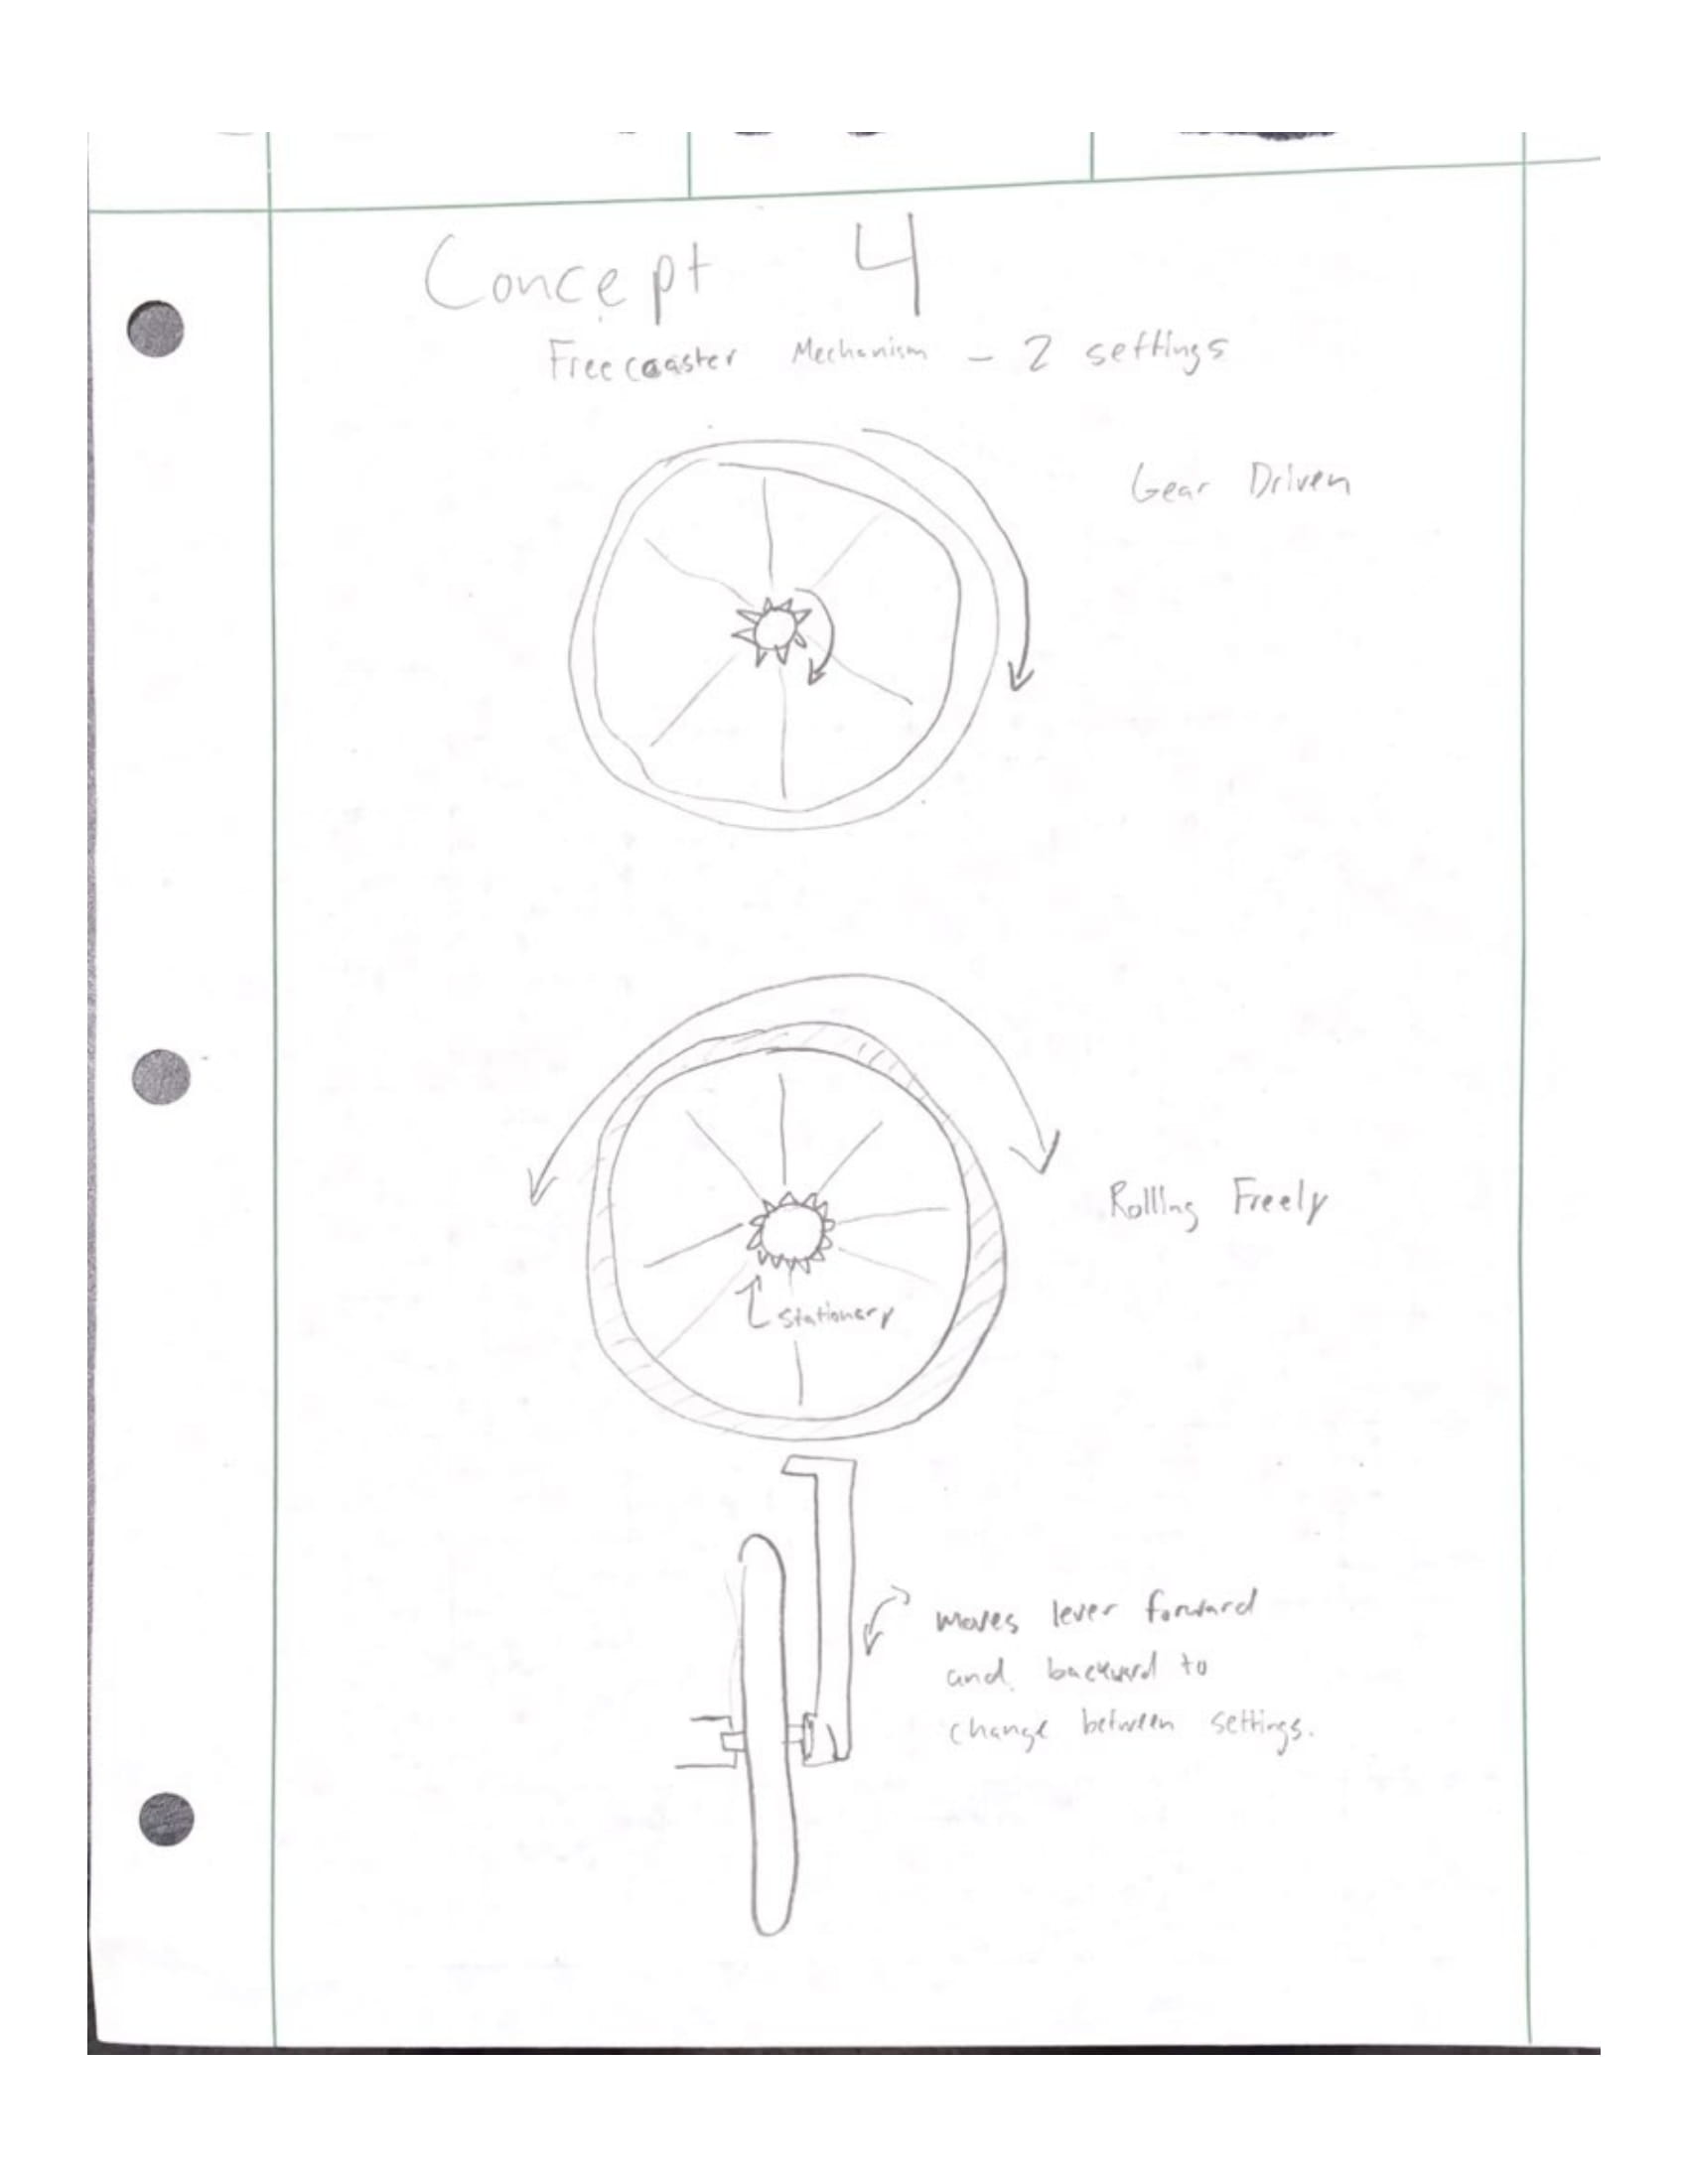 Concept 4
Freecoaster Mechanism - 2 settings
Gear Driven
Rolling Freely
Stationary
moves lever forward
and backward to
change between settings.